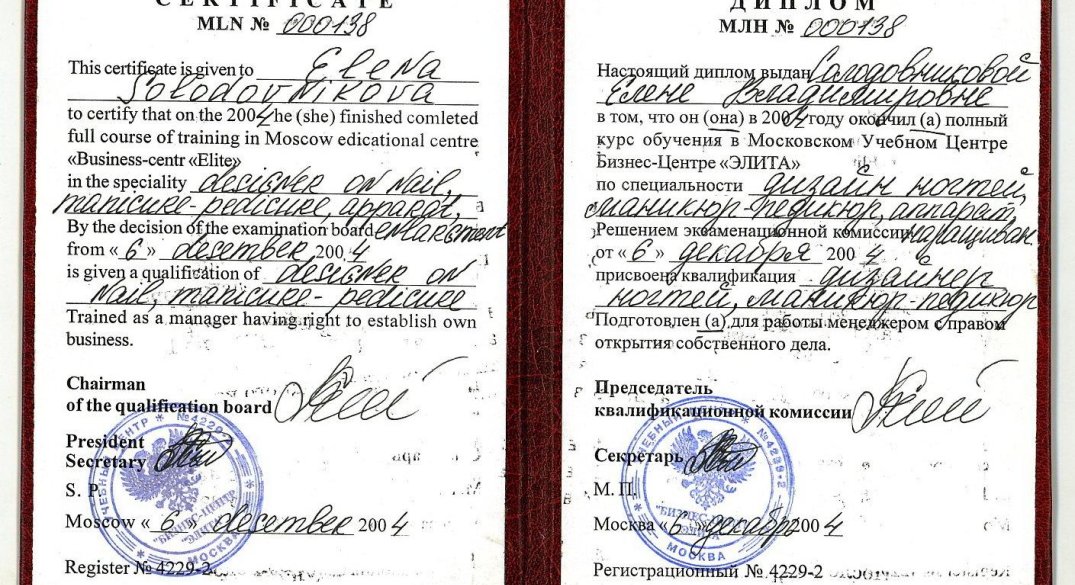 CERTIFICATE
MLN № 000138
This certificate is given to Elena
Solodovnikova
to certify that on the 2004 he (she) finished comleted
full course of training in Moscow edicational centre
«Business-centr «Elite»
in the speciality designer on nail,
manicure-pedicure, apparat,
By the decision of the examination board enlargment
from « 6 » desember 2004
is given a qualification of designer on
nail, manicure-pedicure
Trained as a manager having right to establish own
business.
Chairman
of the qualification board
President
Secretary
S. P.
Moscow « 6 » desember 2004
Register № 4229-2
УЧЕБНЫЙ ЦЕНТР № 4229-2
"БИЗНЕС-ЦЕНТР
"ЭЛИТА"
МОСКВА
ДИПЛОМ
МЛН № 000138
Настоящий диплом выдан Солодовниковой
Елене Владимировне
в том, что он (она) в 2004 году окончил (а) полный
курс обучения в Московском Учебном Центре
Бизнес-Центре «ЭЛИТА»
по специальности дизайн ногтей,
маникюр-педикюр, аппарат,
Решением экзаменационной комиссии наращиван.
от « 6 » декабря 2004
присвоена квалификация дизайнер
ногтей, маникюр-педикюр
Подготовлен (а) для работы менеджером с правом
открытия собственного дела.
Председатель
квалификационной комиссии
Секретарь
М. П.
Москва « 6 » декабр 2004
Регистрационный № 4229-2
УЧЕБНЫЙ ЦЕНТР № 4229-2
"БИЗНЕС-
МОСКВА